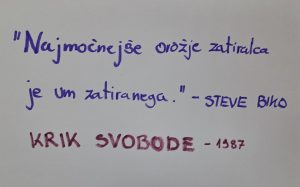 "Najmočnejše orožje zatiralca
je um zatiranega." - STEVE BIKO
KRIK SVOBODE - 1987